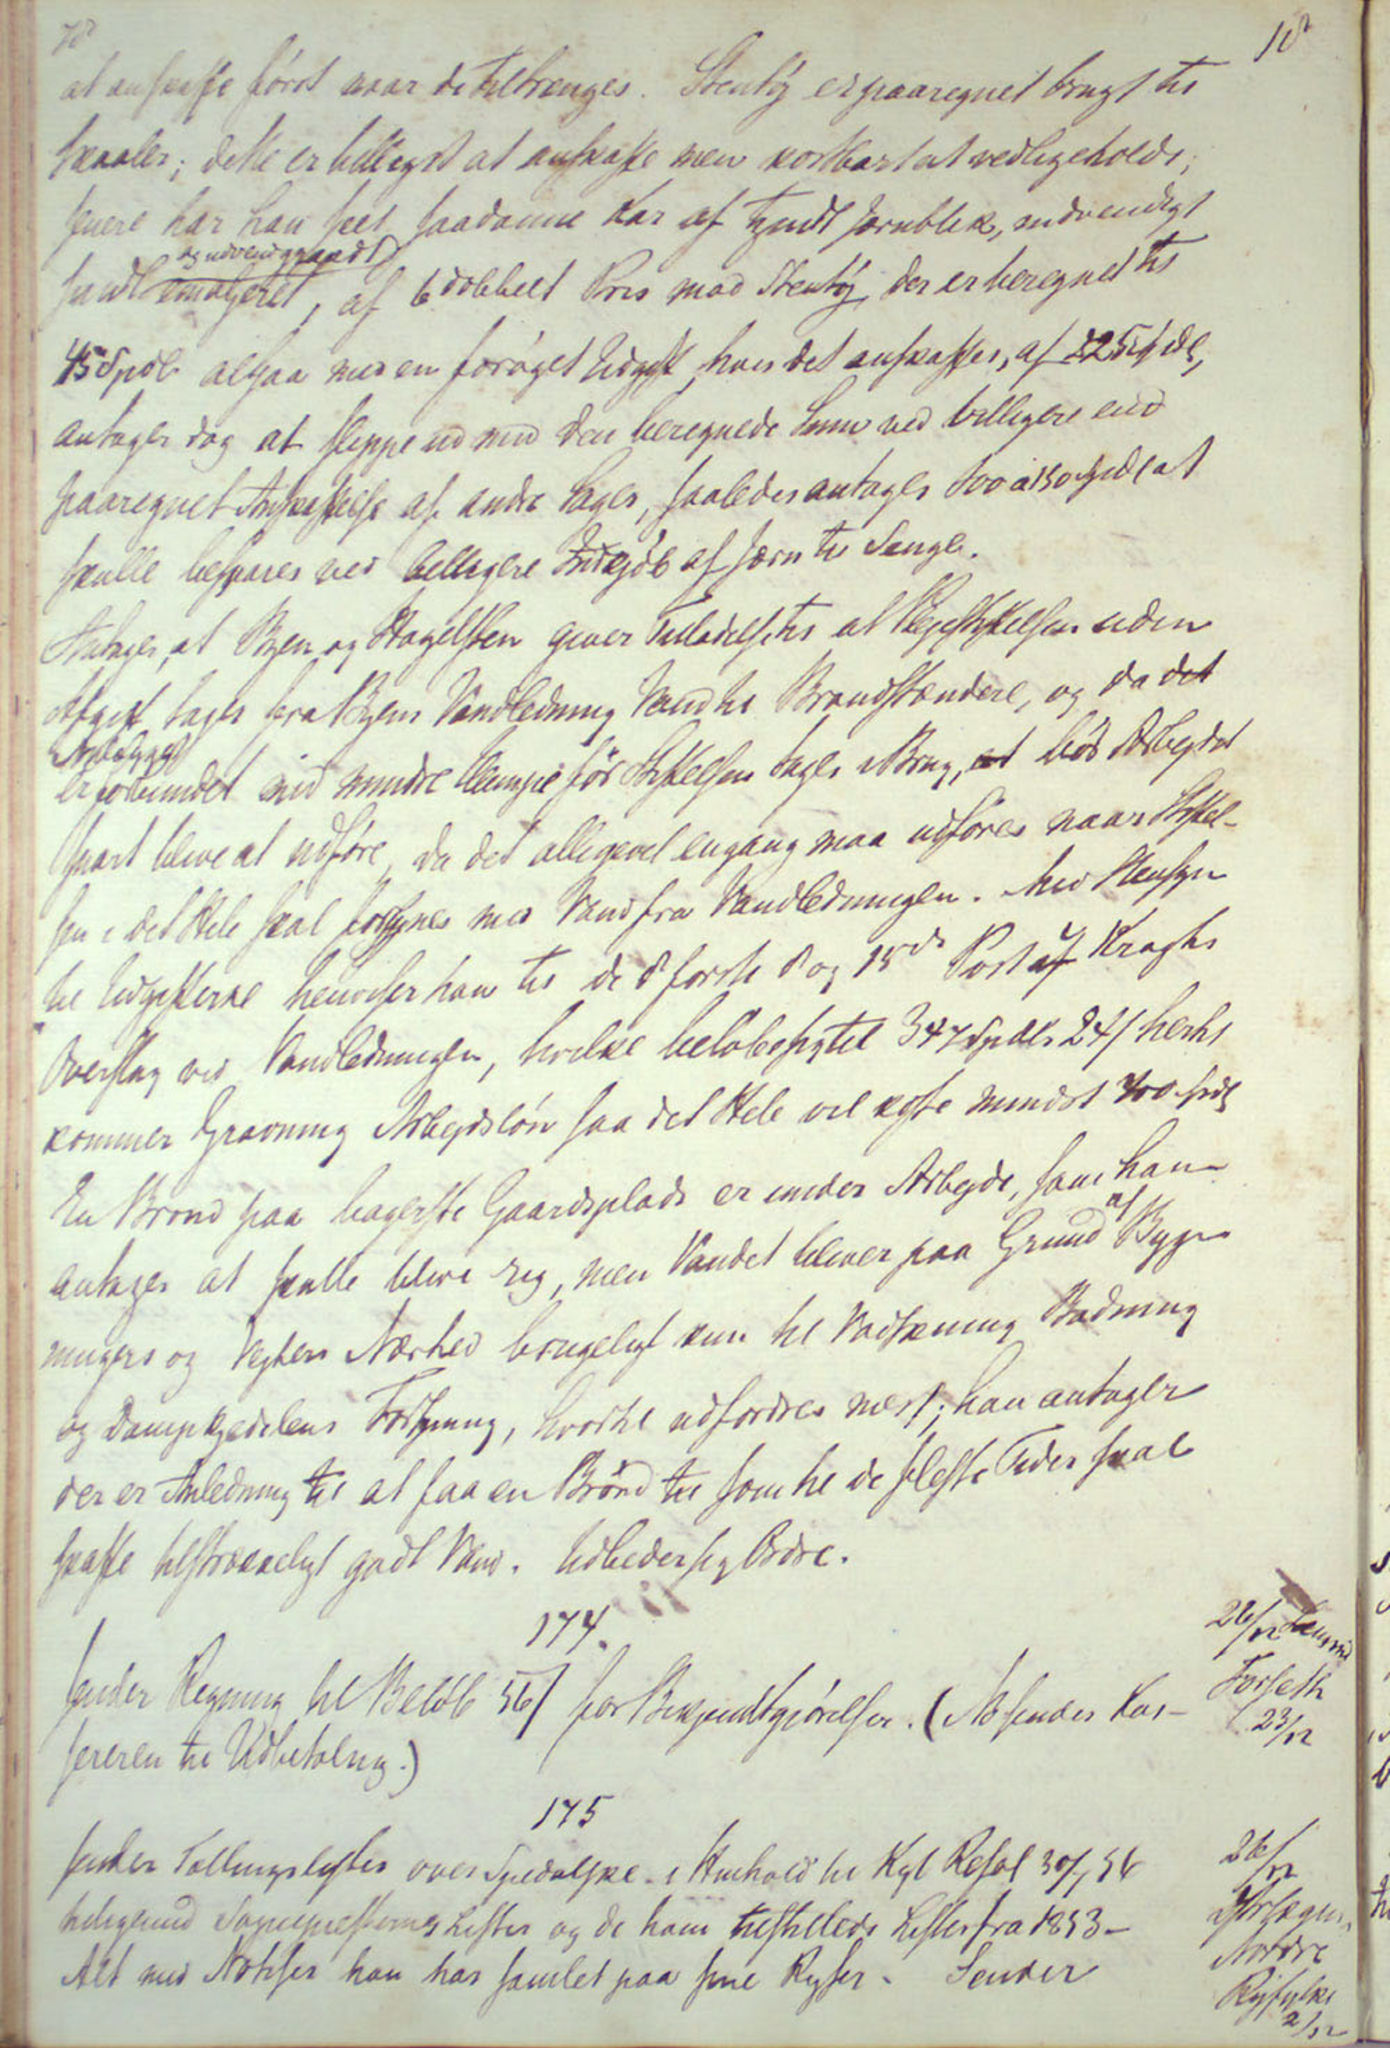 at anskaffe först naar de tiltrænges. Stentöj er paaregnet brugt til
Skaaler; dette er billigst at anskaffe men kostbart at vedligeholde,
senere har han seet saadanne Kar af tyndt Jernblik, indvendigt
og udvendigt
emaljeret, af 6 dobbelt Pris mod Stentöj, der er beregnet til
45 Spdl altsaa med en foröget Udgift, hvis det anskaffes, af 225 Spdl,
antager dog at slippe ud med den beregnede Sum ved billigere end
paaregnet Anskaffelse af andre Sager, saaledes antages 100 a 150 Spdl at
skulle besparet ved billigere Indkjöb af Jern til Senge.
Antager, at Byen og Magistraten giver Tilladelse til at Plejestiftelsen uden
Afgift tages fra Byens Vandledning Vand til Brandstændere, og da det
Anlægget
er forbundet med mindre Ulempe för Stiftelsen tages i Brug, bör Arbejdet
snart blive at udföre, da det alligevel engang maa udföres naar Stiftel-
sen i det Hele skal forsynes med Vand fra Vandledningen. Med Hensyn
til Udgifterne henviser han til de 8 förste og 15de Post af Kraghs
Overslag ved Vandledningen, hvilke belöbe sig til 347 Spdlr 24 s hertil
kommer Gravning Arbejdslön saa det Hele vil koste mindst 400 Spdl
En Brönd paa bagerste Gaardsplads er under Arbejde, som han
antager at skulle blive rig, men Vandet bliver paa Grund af Byg-
ningers og Vejens Nærhed brugeligt kun til Vadskning Badning
og Dampkjedelens Forsyning, hvortil udfordres mest; han antager
der er Anledning til at faa en Brönd til som til de fleste Tider skal
skaffe tilstrækkeligt godt Vand. Udbeder sig Ordre.
174.
26/12
Sender Regning til Belöb 56 s for Bekjendtgjörelser. (Afsendes Kas-
Forseth
23/12
sereren til Udbetaling.)
175
Sender Tællingslister over Spedalske i Henhold til Kgl Resol 30/7 56
26/12
tilligemed Sognepresternes Lister og de ham tilstillede Lister fra 1853-
Alt med Notitser han har samlet paa sine Rejser. Sender
Nordre
Ryfylke
2/12